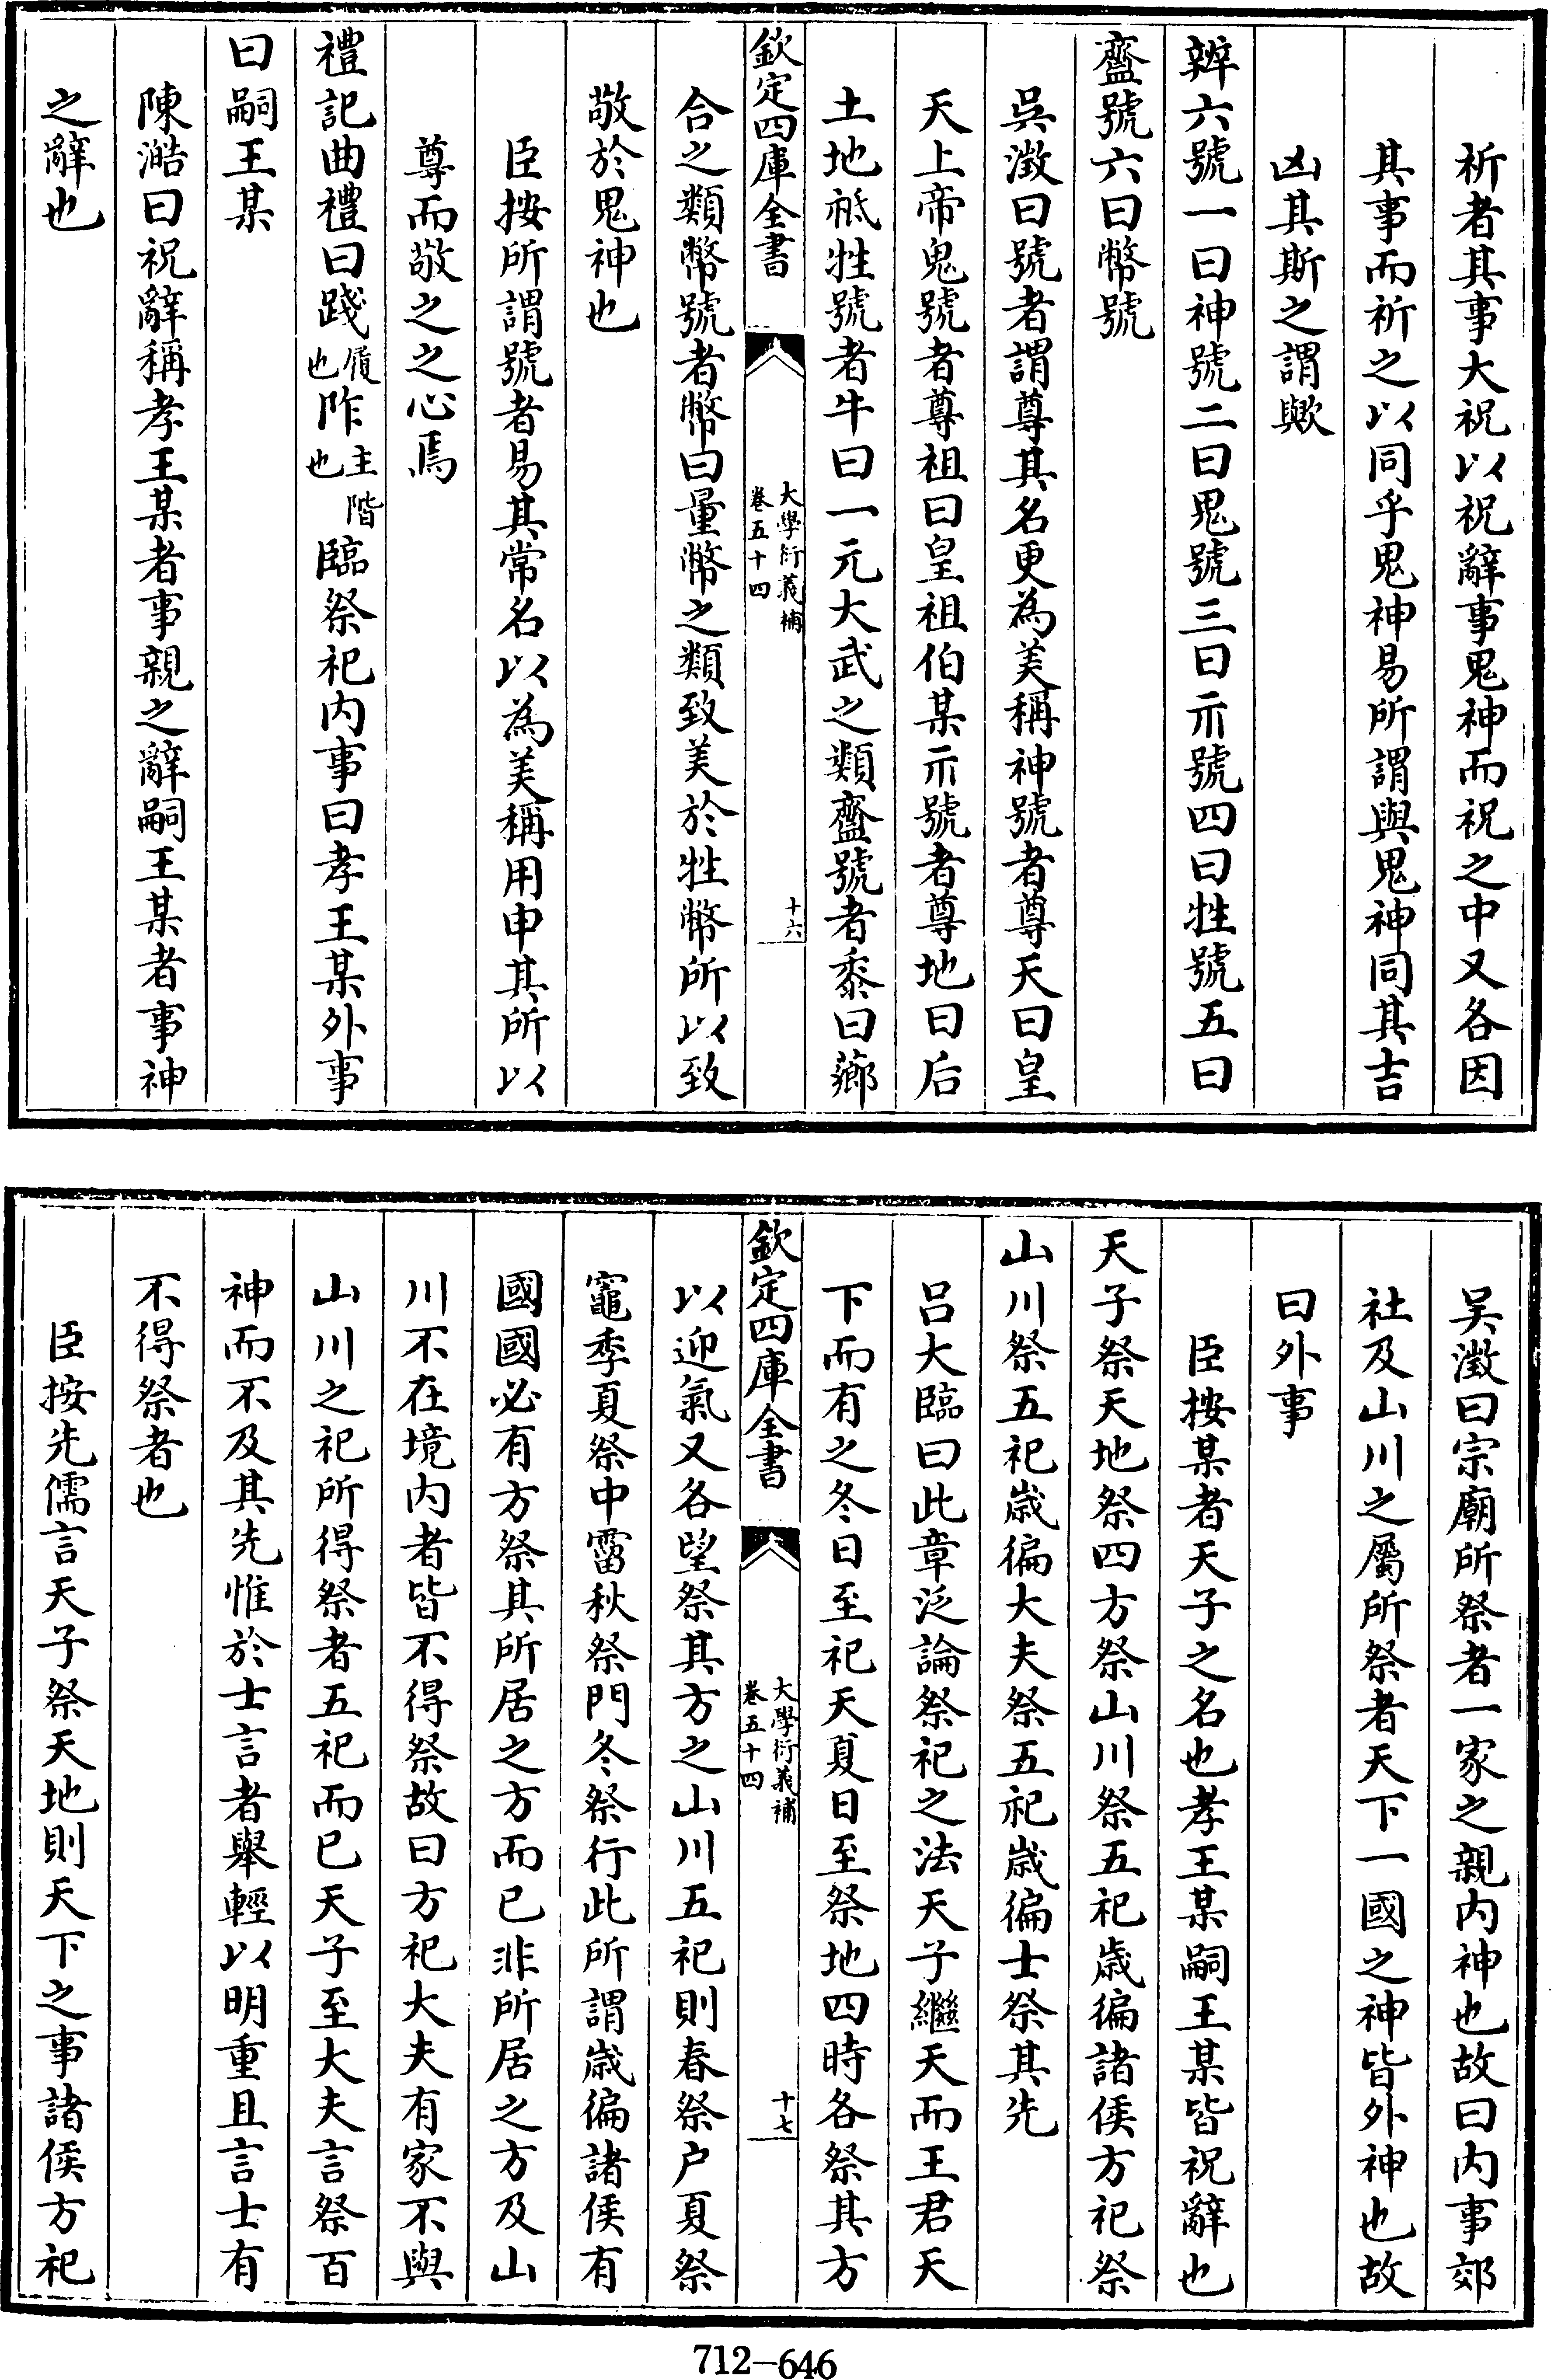 祈者其事大祝以祝辭事鬼神而祝之中又各因
其事而祈之以同乎鬼神易所謂與鬼神同其吉
凶其斯之謂歟
辨六號一曰神號二曰鬼號三曰示號四曰牲號五曰
齍號六曰幣號
吳澂曰號者謂尊其名更為美稱神號者尊天曰皇
天上帝鬼號者尊祖曰皇祖伯某示號者尊地曰后
土地祗牲號者牛曰一元大武之類齍號者黍曰薌
欽定四庫全書
大學衍義補
卷五十四
十六
合之類幣號者幣曰量幣之類致美於牲幣所以致
敬於鬼神也
臣按所謂號者易其常名以為美稱用申其所以
尊而敬之之心焉
禮記曲禮曰踐履也阼主階也臨祭祀内事曰孝王某外事
曰嗣王某
陳澔曰祝辭稱孝王某者事親之辭嗣王某者事神
之辭也
吴澂曰宗廟所祭者一家之親内神也故曰内事郊
社及山川之屬所祭者天下一國之神皆外神也故
曰外事
臣按某者天子之名也孝王某嗣王某皆祝辭也
天子祭天地祭四方祭山川祭五祀歲徧諸侯方祀祭
山川祭五祀歲徧大夫祭五祀歲徧士祭其先
吕大臨曰此章泛論祭祀之法天子繼天而王君天
下而有之冬日至祀天夏日至祭地四時各祭其方
欽定四庫全書
大學衍義補
卷五十四
十七
以迎氣又各望祭其方之山川五祀則春祭户夏祭
竈季夏祭中霤秋祭門冬祭行此所謂歲徧諸侯有
國國必有方祭其所居之方而已非所居之方及山
川不在境内者皆不得祭故曰方祀大夫有家不與
山川之祀所得祭者五祀而已天子至大夫言祭百
神而不及其先惟於士言者舉輕以明重且言士有
不得祭者也
臣按先儒言天子祭天地則天下之事諸侯方祀
712-646